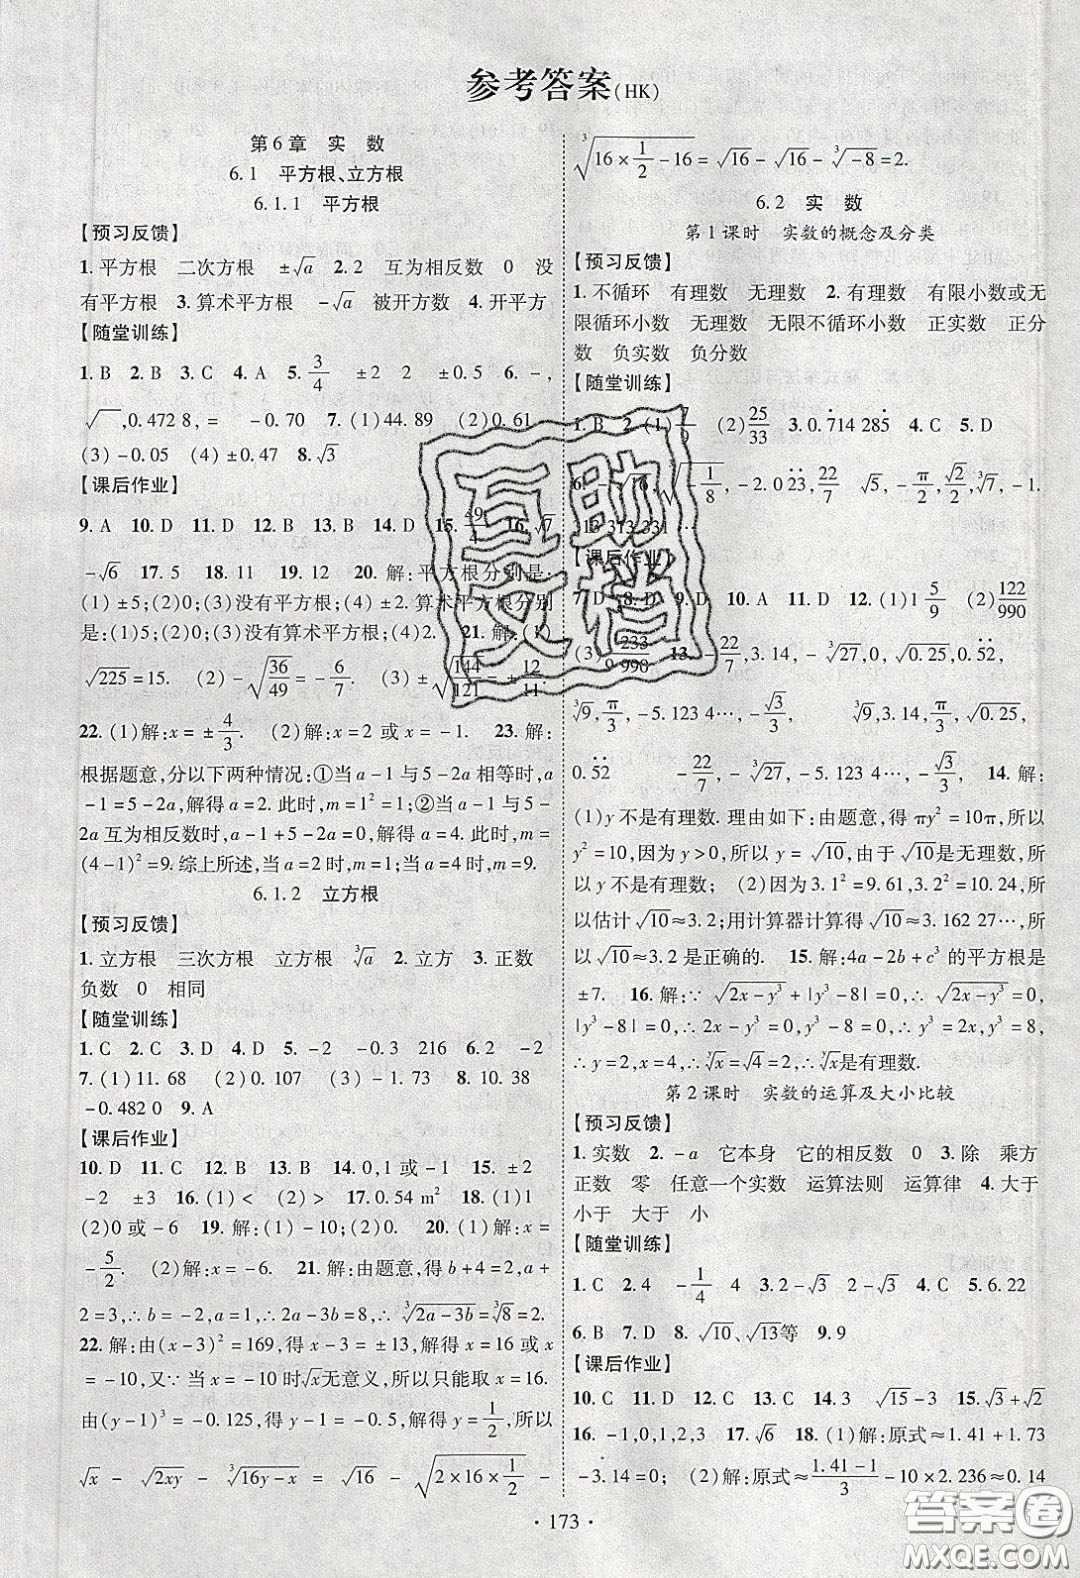 参考答案(HK)
第6章 实 数
6.1 平方根、立方根
6.1.1 平方根
【预习反馈】
1.平方根 二次方根 ±√a 2.2 互为相反数 0 没
有平方根 3.算术平方根 -√a 被开方数 4.开平方
【随堂训练】
1.B 2.B 3.C 4.A 5.3/4 ±2 2 ±0.5 6.-,
√ ,0.472 8,= -0.70 7.(1)44.89 (2)0.61
(3)-0.05 (4)±0.12 8.√3
【课后作业】
9.A 10.D 11.D 12.B 13.B 14.D 15.49/4 16.√7
-√6 17.5 18.11 19.12 20.解:平方根分别是:
(1)±5;(2)0;(3)没有平方根;(4)±2.算术平方根分别
是:(1)5;(2)0;(3)没有算术平方根;(4)2. 21.解:(1)
√225=15. (2)-√(36/49)=-6/7. (3)±√(144/121)=±12/11.
22.(1)解:x=±4/3. (2)解:x=2或x=-1. 23.解:
根据题意,分以下两种情况:①当a-1与5-2a相等时,a
-1=5-2a,解得a=2.此时,m=1²=1;②当a-1与5-
2a互为相反数时,a-1+5-2a=0,解得a=4.此时,m=
(4-1)²=9.综上所述,当a=2时,m=1;当a=4时,m=9.
6.1.2 立方根
【预习反馈】
1.立方根 三次方根 立方根 ∛a 2.立方 3.正数
负数 0 相同
【随堂训练】
1.C 2.C 3.D 4.D 5.-2 -0.3 216 6.2 -2
7.(1)11.68 (2)0.107 (3)-1.61 8.10.38
-0.482 0 9.A
【课后作业】
10.D 11.C 12.B 13.B 14.0,1或-1 15.±2
-2 ±3 16.(1)< (2)> 17.0.54 m² 18.(1)1
(2)0或-6 19.解:(1)-0.1. (2)-9. 20.(1)解:x=
-5/2. (2)解:x=-6. 21.解:由题意,得b+4=2,a+
2=3,∴b=-2,a=1,∴2a-3b=8,∴∛(2a-3b)=∛8=2.
22.解:由(x-3)²=169,得x-3=±13,解得x=16或x
=-10,又∵当x=-10时√x无意义,所以只能取x=16.
由(y-1)³=-0.125,得y-1=-0.5,解得y=1/2,所以
√x - √(2xy) - ∛(16y-x) = √16 - √(2×16×1/2) -
∛(16×1/2-16)=√16-√16-∛-8=2.
6.2 实 数
第1课时 实数的概念及分类
【预习反馈】
1.不循环 有理数 无理数 2.有理数 有限小数或无
限循环小数 无理数 无限不循环小数 正实数 正分
数 负实数 负分数
【随堂训练】
1.B 2.(1)7/9 (2)25/33 3.0.7̇14 285̇ 4.C 5.D
∛(-1/8),-2.02̇3̇,22/7 √5,-π/2,√2/2,∛7,-1.
13 313 331…
【课后作业】
7.D 8.D 9.D 10.A 11.D 12.(1)1 5/9 (2)122/990
(3)233/9 990 13.-22/7,3.14,-∛27,0,√0.25,0.5̇2̇,
∛9,π/3,-5.123 4…,-√3/3, ∛9,3.14,π/3,√0.25,
0.5̇2̇ -22/7,-∛27,-5.123 4…,-√3/3. 14.解:
(1)y不是有理数.理由如下:由题意,得πy²=10π,即
y²=10,因为y>1,所以y=√10,由于√10是无理数,所
以y不是有理数; (2)因为3.1²=9.61,3.2²=10.24,所
以估计√10≈3.2;用计算器计算得√10≈3.162 27…,所
以√10≈3.2是正确的. 15.解:4a-2b+c³的平方根是
±7. 16.解:∵√(2x-y³)+|y³-8|=0,∴√(2x-y³)=0,
|y³-8|=0,∴2x-y³=0,y³-8=0,∴2x=y³,y³=8,
∴y=2,x=4,∴ʸ√x=√4=2,∴ʸ√x是有理数.
第2课时 实数的运算及大小比较
【预习反馈】
1.实数 2.-a 它本身 它的相反数 0 3.除 乘方
正数 零 任意一个实数 运算法则 运算律 4.大于
小于 大于 小
【随堂训练】
1.C 2.4 -1/4 4 3.2-√3 2-√3 4.C 5.6.22
6.B 7.D 8.√10、√13等 9.9
【课后作业】
10.C 11.D 12.C 13.C 14.3 √15-3 15.√3+√2
16.-1,0,1,2,3 17.√6 18.(1)解:原式≈1.41+1.73
-3.14=0; (2)解:原式≈(1.41-1)/3-10×2.236≈0.14
·173·
互助文档
答案圈
MXQE.COM